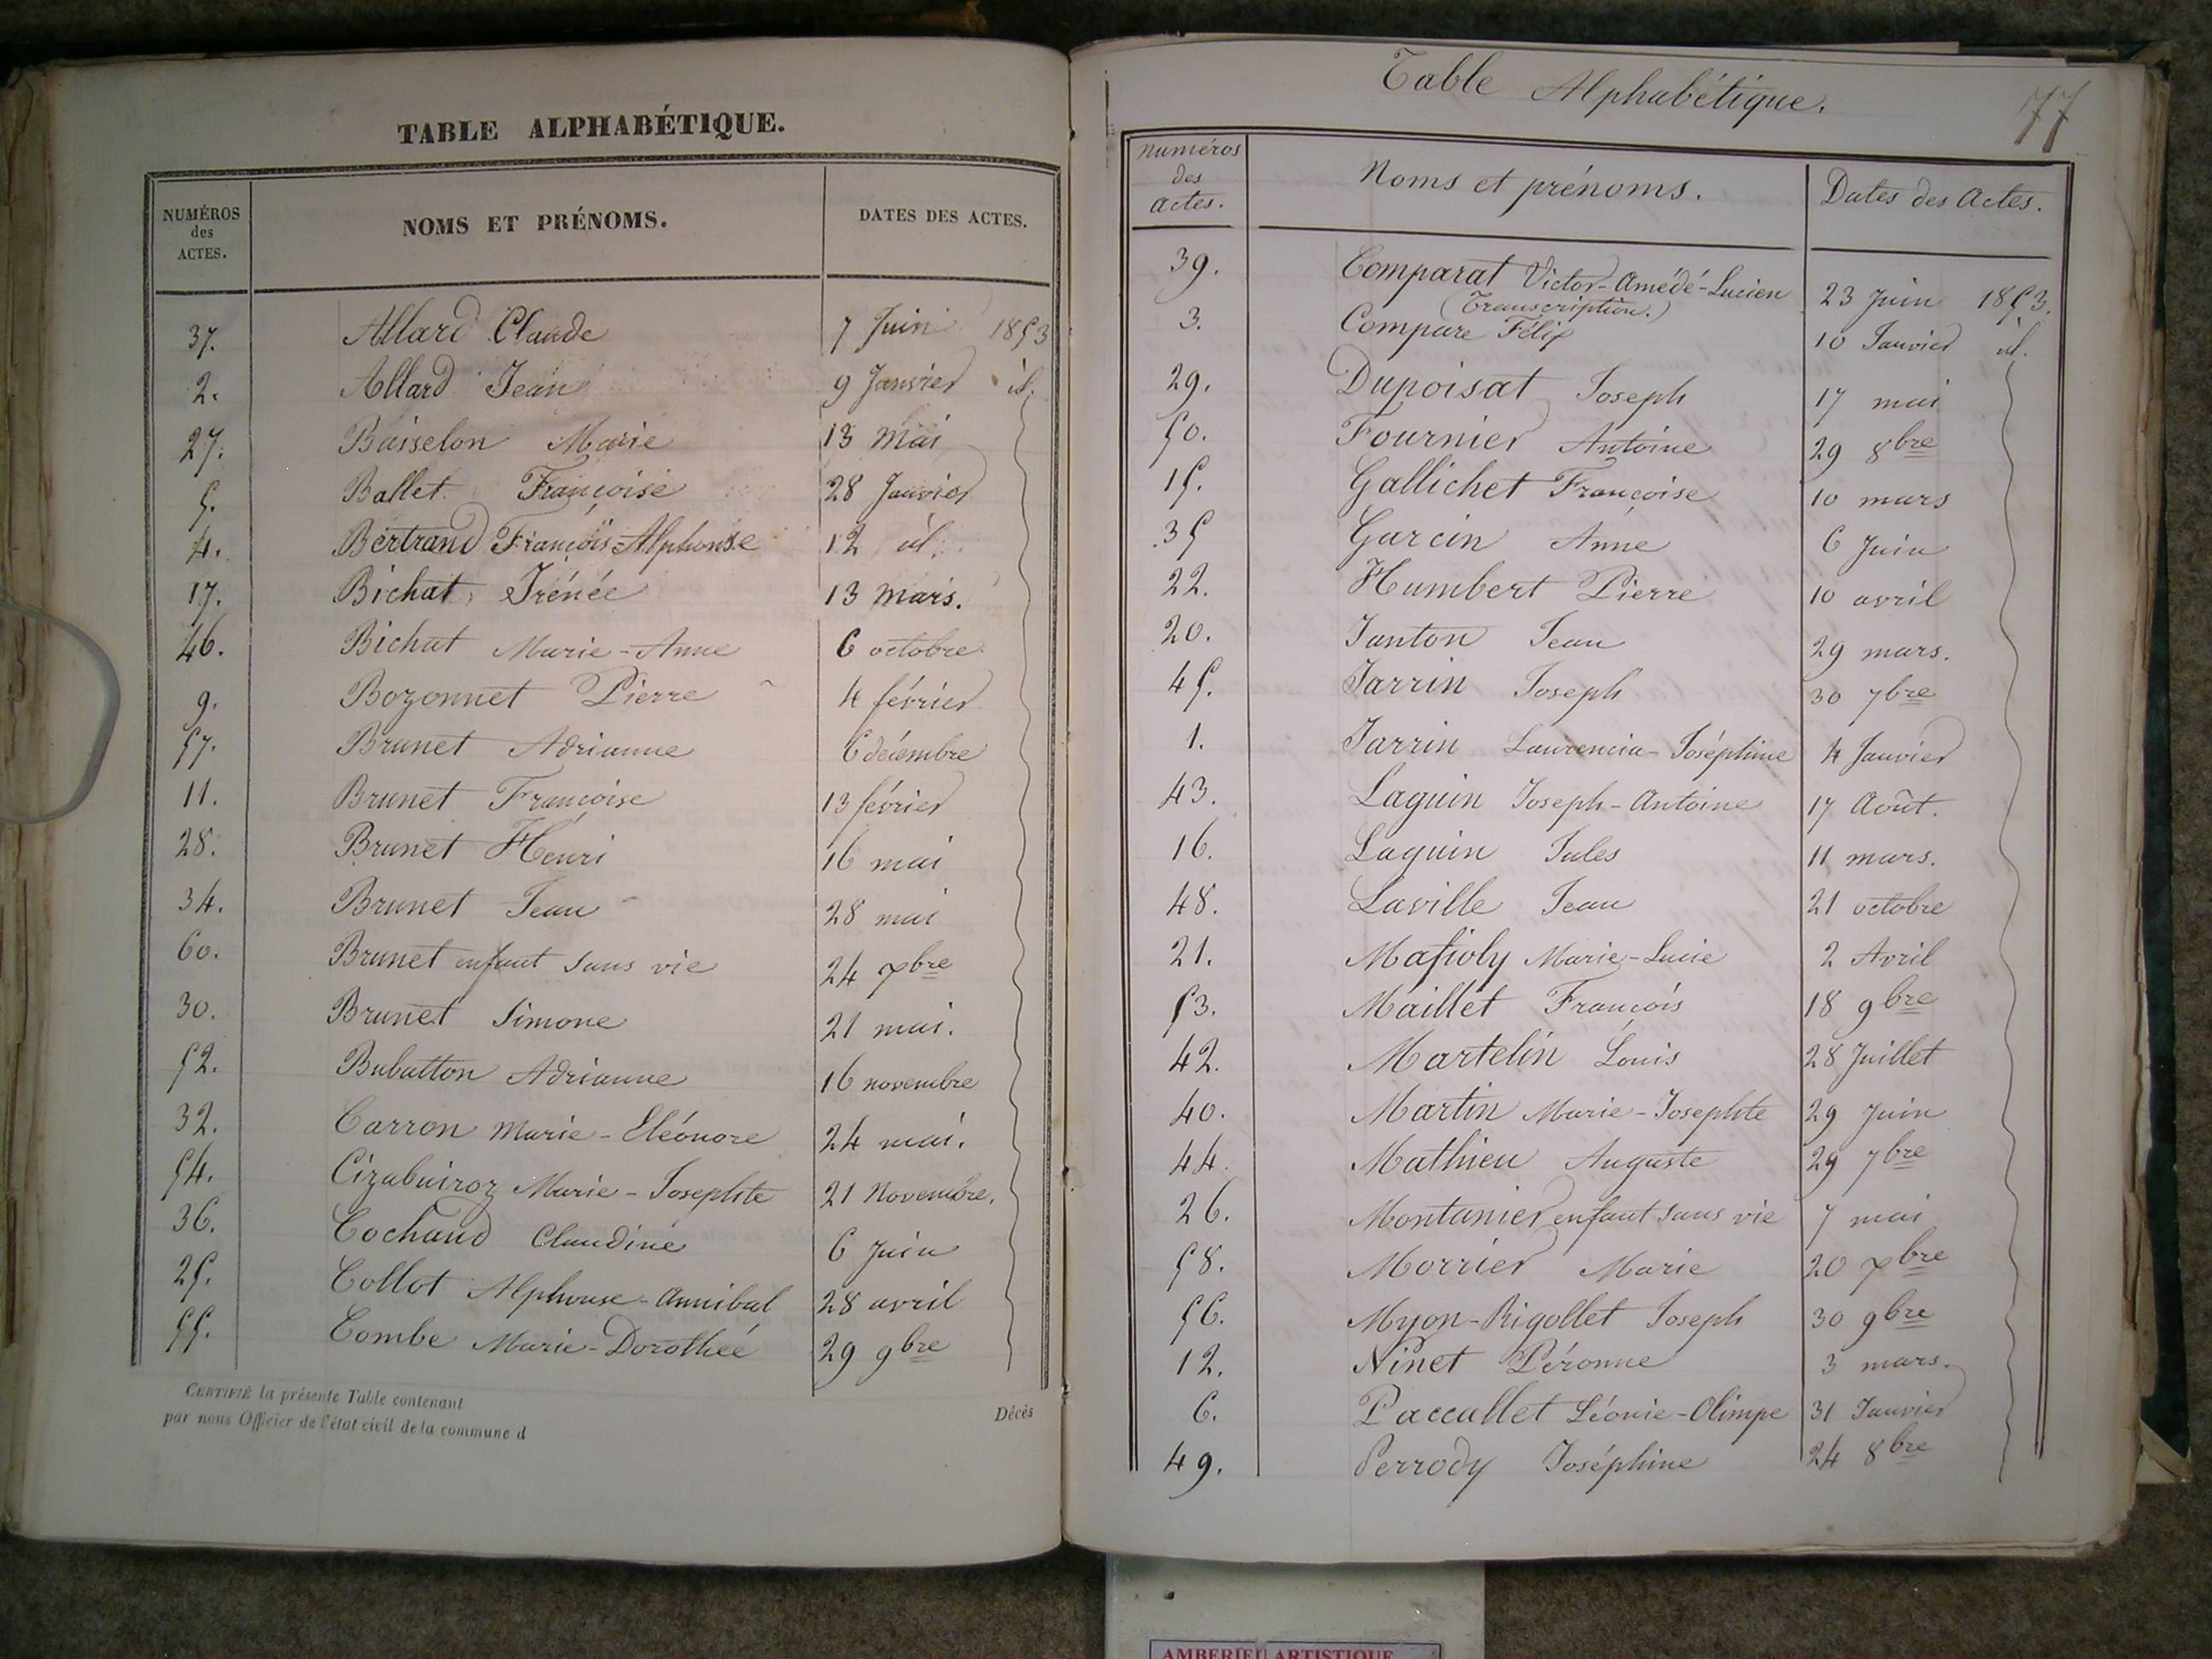 TABLE ALPHABÉTIQUE.
NUMÉROS des ACTES. NOMS ET PRÉNOMS. DATES DES ACTES.
37. Allard Claude 7 Juin 1853
2. Allard Jean 9 Janvier id.
27. Baisselon Marie 13 Mai
5. Ballet Françoise 28 Janvier
4. Bertrand François-Alphonse 12 id.
17. Bichat Irénée 13 Mars.
46. Bichat Marie-Anne 6 octobre
9. Bozonnet Pierre 4 février
57. Brunet Adrianne 6 décembre
11. Brunet Françoise 13 février
28. Brunet Henri 16 mai
34. Brunet Jean 28 mai
60. Brunet enfant sans vie 24 Xbre
30. Brunet Simone 21 mai.
52. Bubatton Adrianne 16 novembre
32. Carron Marie-Eléonore 24 mai.
54. Cizabuiroz Marie-Josephte 21 Novembre.
36. Cochand Claudine 6 Juin
25. Collot Alphonse-Annibal 28 avril
55. Combe Marie-Dorothée 29 9bre
CERTIFIÉ la présente Table contenant
Décès
par nous Officier de l'état civil de la commune d
Table Alphabétique.
77
numéros des actes. Noms et prénoms. Dates des Actes.
39. Comparat Victor-Amédé-Lucien 23 Juin 1853.
(Transcription.)
3. Compare Félix 10 Janvier id.
29. Dupoisat Joseph 17 mai
50. Fournier Antoine 29 8bre
15. Gallichet Françoise 10 mars
35 Garcin Anne 6 Juin
22. Humbert Pierre 10 avril
20. Janton Jean 29 mars.
45. Jarrin Joseph 30 7bre
1. Jarrin Laurencia-Joséphine 4 Janvier
43. Laguin Joseph-Antoine 17 Août.
16. Laguin Jules 11 mars.
48. Laville Jean 21 octobre
21. Marie-Lucie 2 Avril
53. Maillet François 18 9bre
42. Martelin Louis 28 Juillet
40. Martin Marie-Josephte 29 Juin
44. Mathieu Auguste 29 7bre
26. Montanier enfant sans vie 7 mai
58. Morrier Marie 20 Xbre
56. Myon-Rigollet Joseph 30 9bre
12. Ninet Péronne 3 mars.
6. Paccallet Léonie-Olimpe 31 Janvier
49. Perrody Joséphine 24 8bre
AMBERIEU ARTISTIQUE